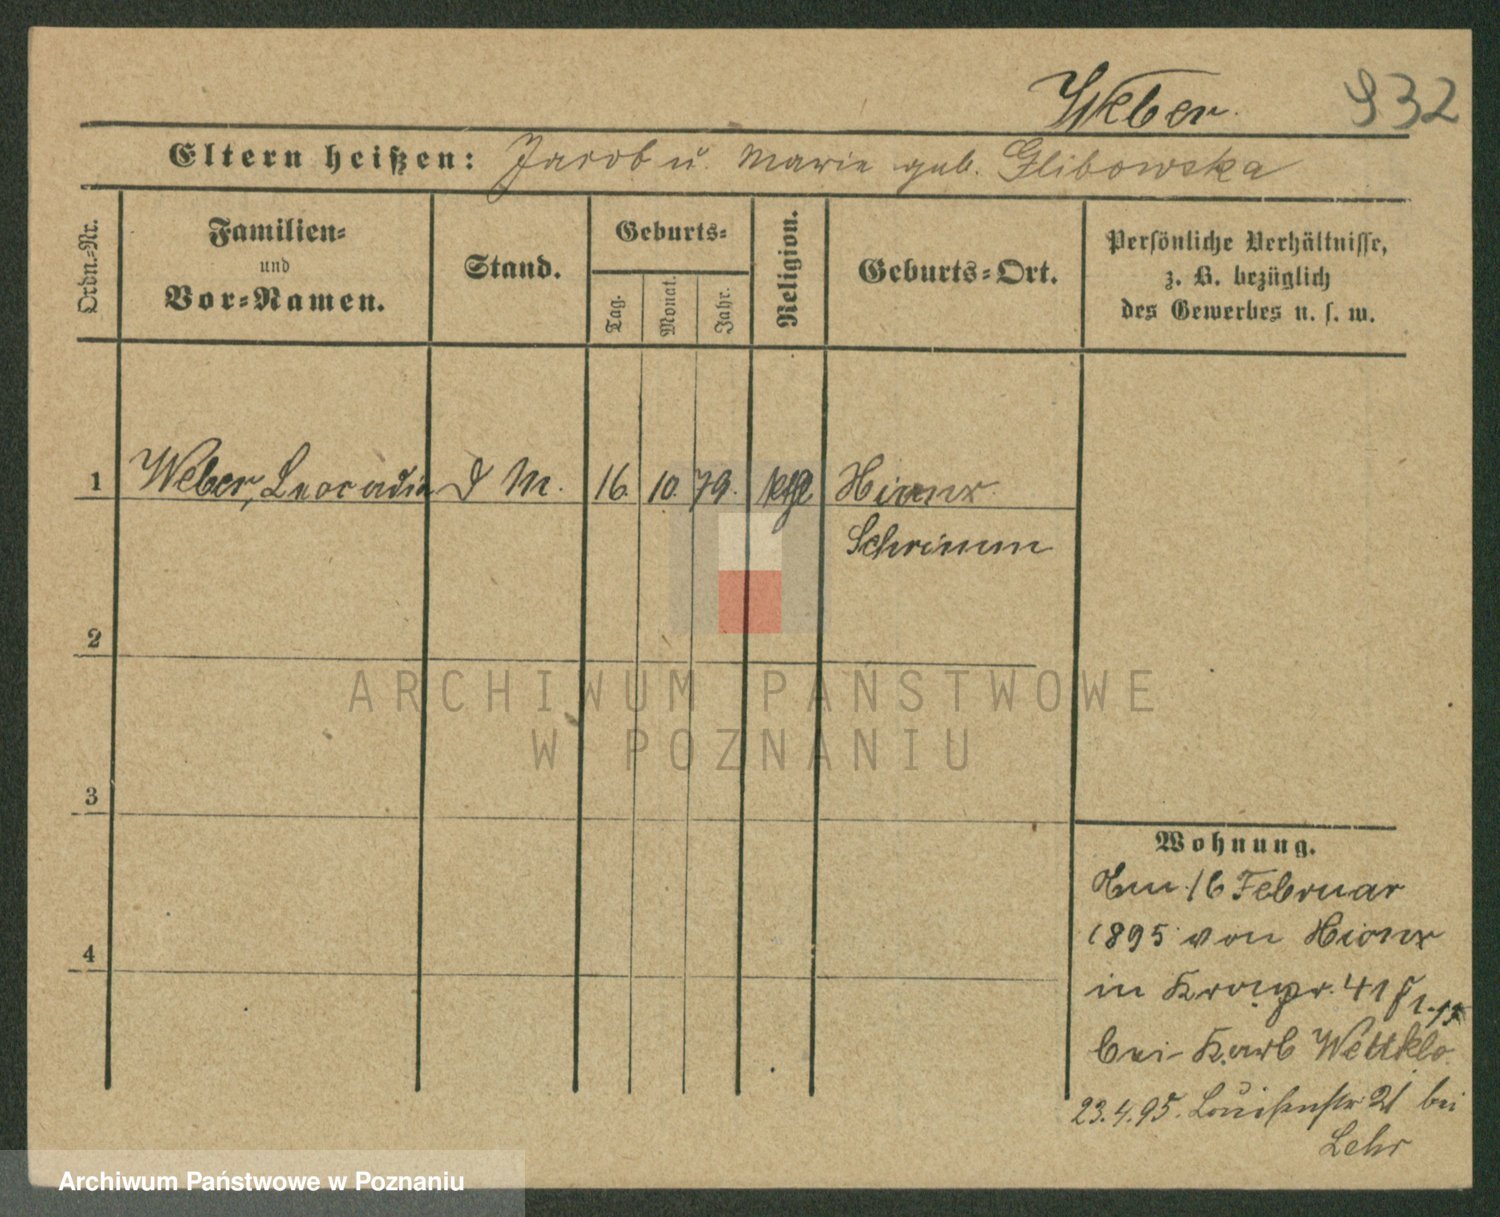 Weber. 932
Eltern heißen: Jacob u. Marie geb. Glibowska
Ordn.-Nr.
Familien-
und
Vor-Namen.
Stand.
Geburts-
Tag.
Monat.
Jahr.
Religion.
Geburts-Ort.
Persönliche Verhältnisse,
z. B. bezüglich
des Gewerbes u. s. w.
1 Weber, Leocadia d M. 16. 10. 79. kth
Schrimm
2
ARCHIWUM PAŃSTWOWE
W POZNANIU
3
Wohnung.
Am 16 Februar
1895 von
in Kronpr. 41
bei Karl
4
23.4.95. Louisenstr 21 bei
Lehr
Archiwum Państwowe w Poznaniu